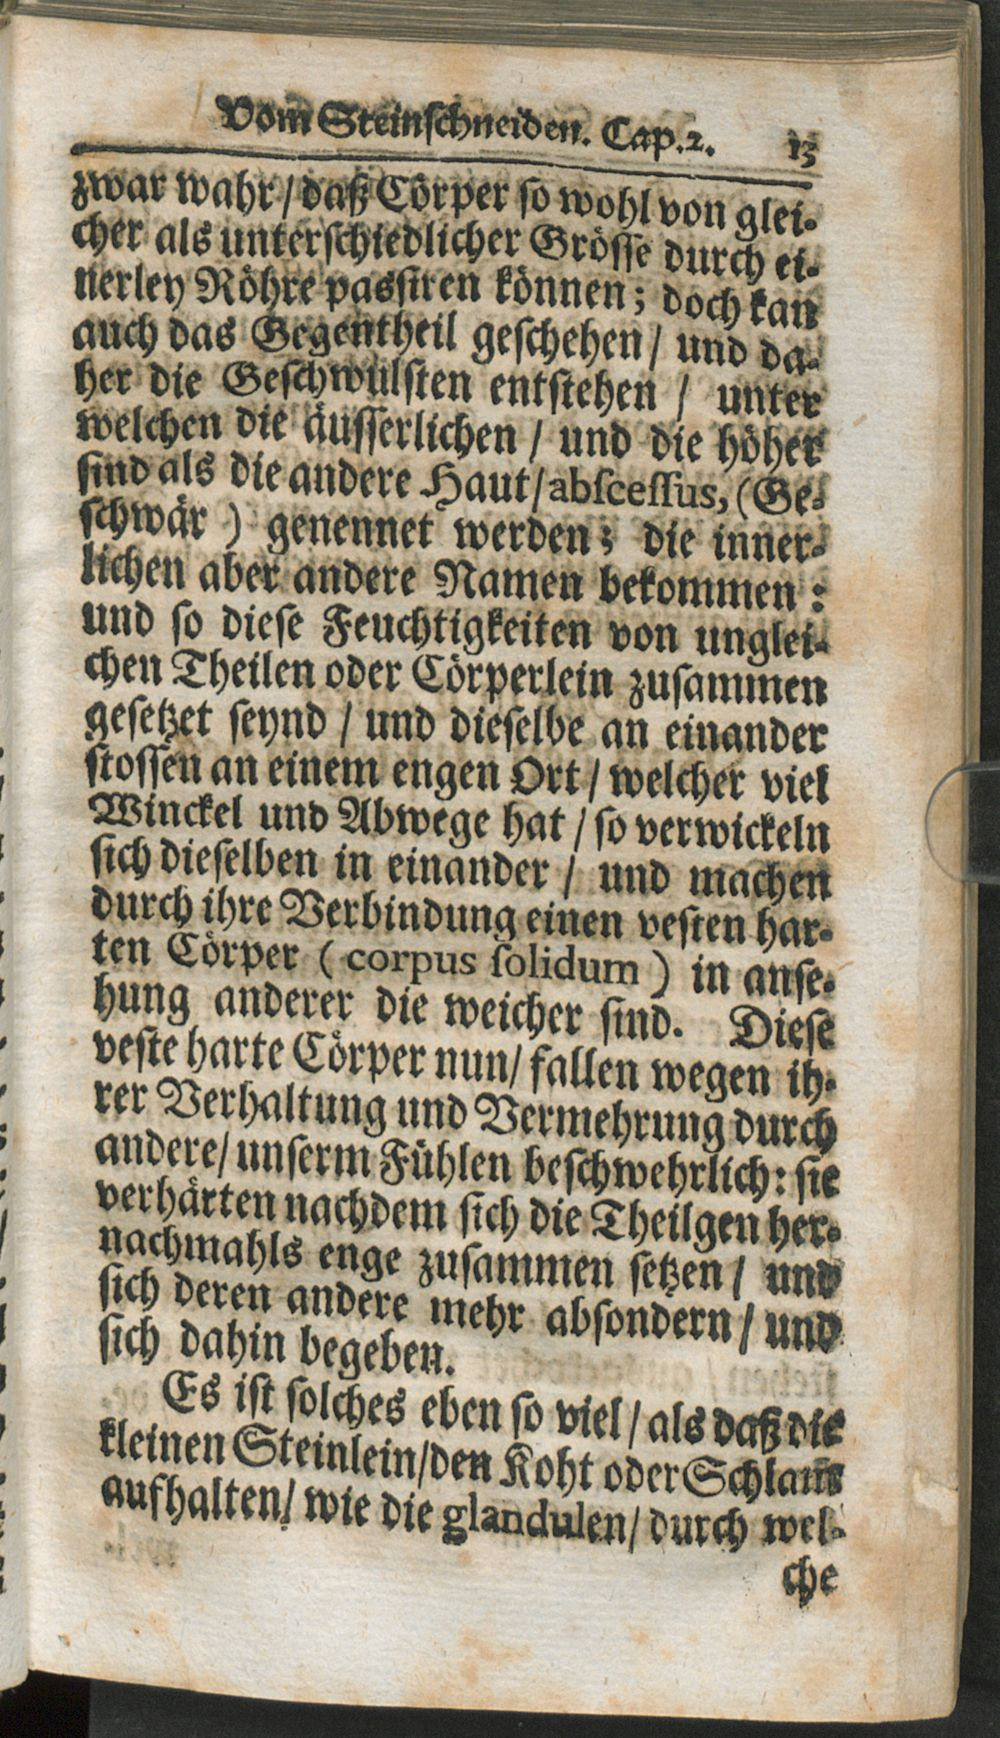 Vom Steinschneiden. Cap. 2. 13
zwar wahr / daß Cörper so wohl von glei-
cher als unterschiedlicher Grösse durch ei-
nerley Röhre passiren können; doch kan
auch das Gegentheil geschehen / und da-
her die Geschwülsten entstehen / unter
welchen die äusserlichen / und die höher
sind als die andere Haut / abscessus, (Ge-
schwär) genennet werden; die inner-
lichen aber andere Namen bekommen:
und so diese Feuchtigkeiten von unglei-
chen Theilen oder Cörperlein zusammen
gesetzet seynd / und dieselbe an einander
stossen an einem engen Ort / welcher viel
Winckel und Abwege hat / so verwickeln
sich dieselben in einander / und machen
durch ihre Verbindung einen vesten har-
ten Cörper (corpus solidum) in anse-
hung anderer die weicher sind. Diese
veste harte Cörper nun / fallen wegen ih-
rer Verhaltung und Vermehrung durch
andere / unserm Fühlen beschwehrlich: sie
verhärten nachdem sich die Theilgen her-
nachmahls enge zusammen setzen / und
sich deren andere mehr absondern / und
sich dahin begeben.
Es ist solches eben so viel / als daß die
kleinen Steinlein / den Koht oder Schlam̃
aufhalten / wie die glandulen / durch wel-
che